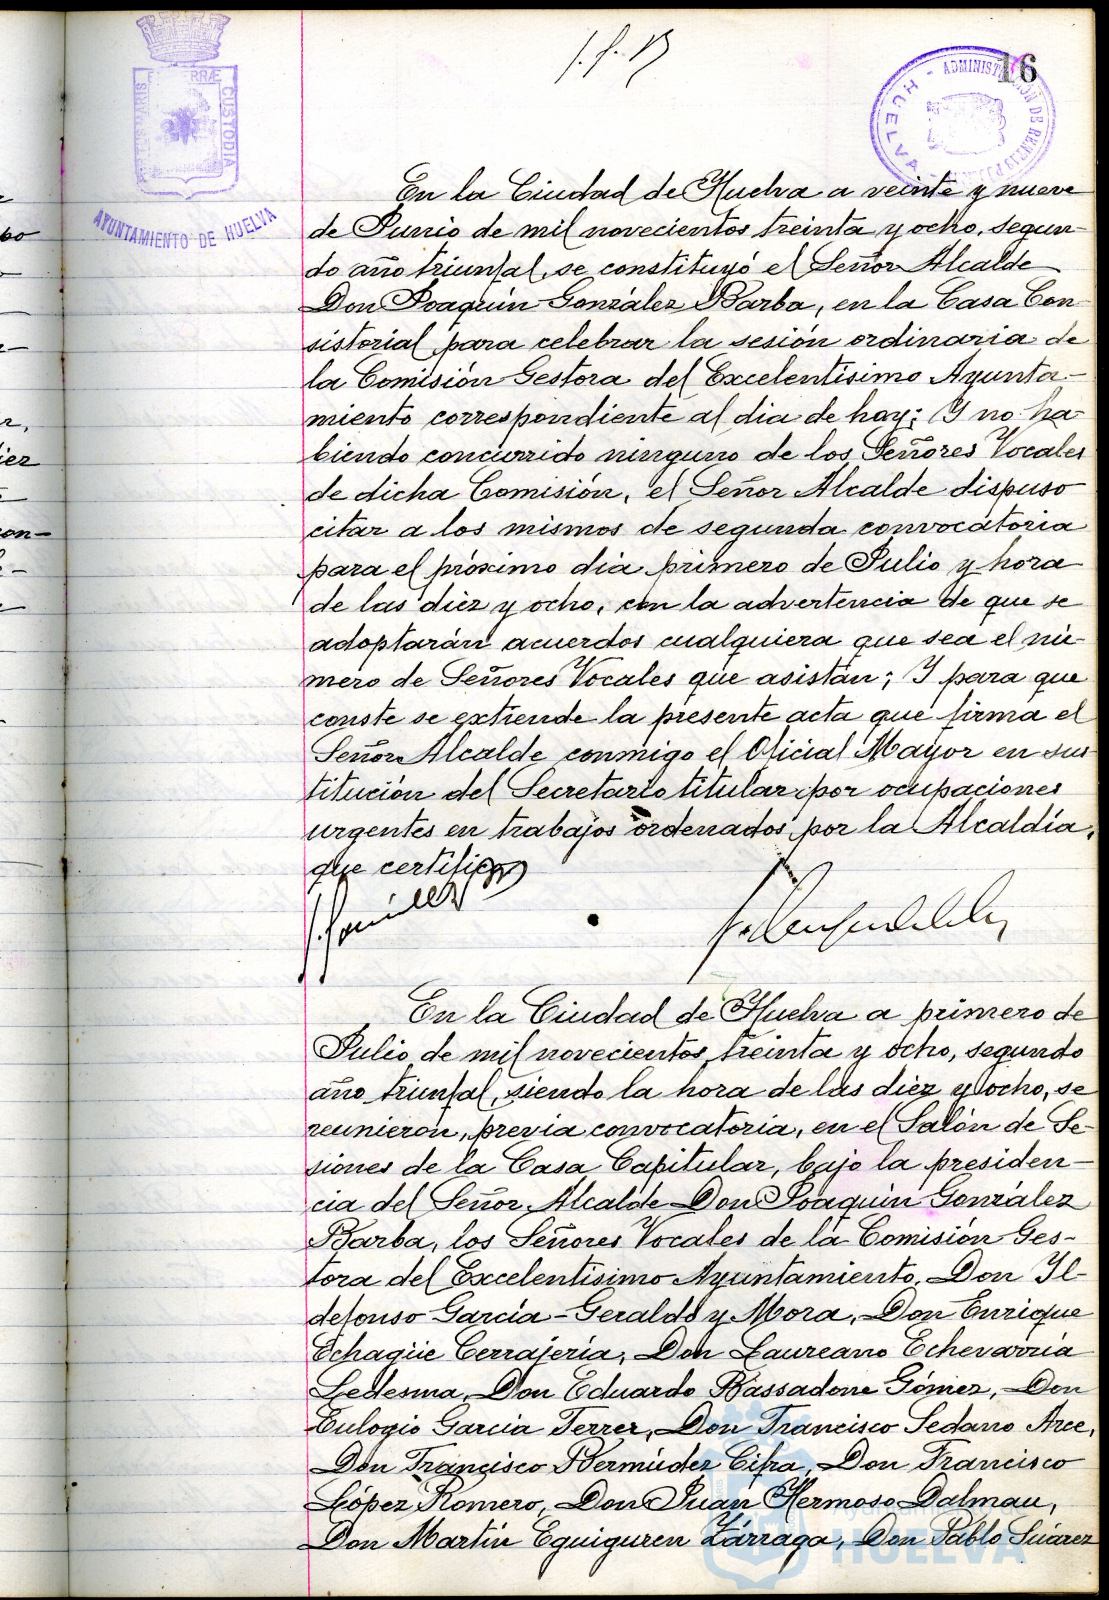 16
AYUNTAMIENTO DE HUELVA
CUSTODIA
HUELVA
En la Ciudad de Huelva a veinte y nueve
de Junio de mil novecientos treinta y ocho, segun-
do año triunfal, se constituyó el Señor Alcalde
Don Joaquín González Barba, en la Casa Con
sistorial para celebrar la sesión ordinaria de
la Comisión Gestora del Excelentísimo Ayunta-
miento correspondiente al dia de hoy; Y no ha-
biendo concurrido ninguno de los Señores Vocales
de dicha Comisión, el Señor Alcalde dispuso
citar a los mismos de segunda convocatoria
para el próximo dia primero de Julio y hora
de las diez y ocho, con la advertencia de que se
adoptarán acuerdos cualquiera que sea el nú-
mero de Señores Vocales que asistan; Y para que
conste se extiende la presente acta que firma el
Señor Alcalde conmigo el Oficial Mayor en sus
titución del Secretario titular por ocupaciones
urgentes en trabajos ordenados por la Alcaldía,
que certifico
En la Ciudad de Huelva a primero de
Julio de mil novecientos treinta y ocho, segundo
año triunfal, siendo la hora de las diez y ocho, se
reunieron, previa convocatoria, en el Salón de Se-
siones de la Casa Capitular, bajo la presiden-
cia del Señor Alcalde Don Joaquín González
Barba, los Señores Vocales de la Comisión Ges-
tora del Excelentísimo Ayuntamiento, Don Il-
defonso García-Geraldo y Mora, Don Enrique
Echagüe Cerrajería, Don Laureano Echevarría
Ledesma, Don Eduardo Bassadone Gómez, Don
Eulogio García Terrer, Don Francisco Sedano Arce,
Don Francisco Bermúdez Cifra, Don Francisco
López Romero, Don Juan Hermoso Dalmau,
Don Martín Eguiguren Zárraga, Don Pablo Suárez
Ayuntamiento de
HUELVA